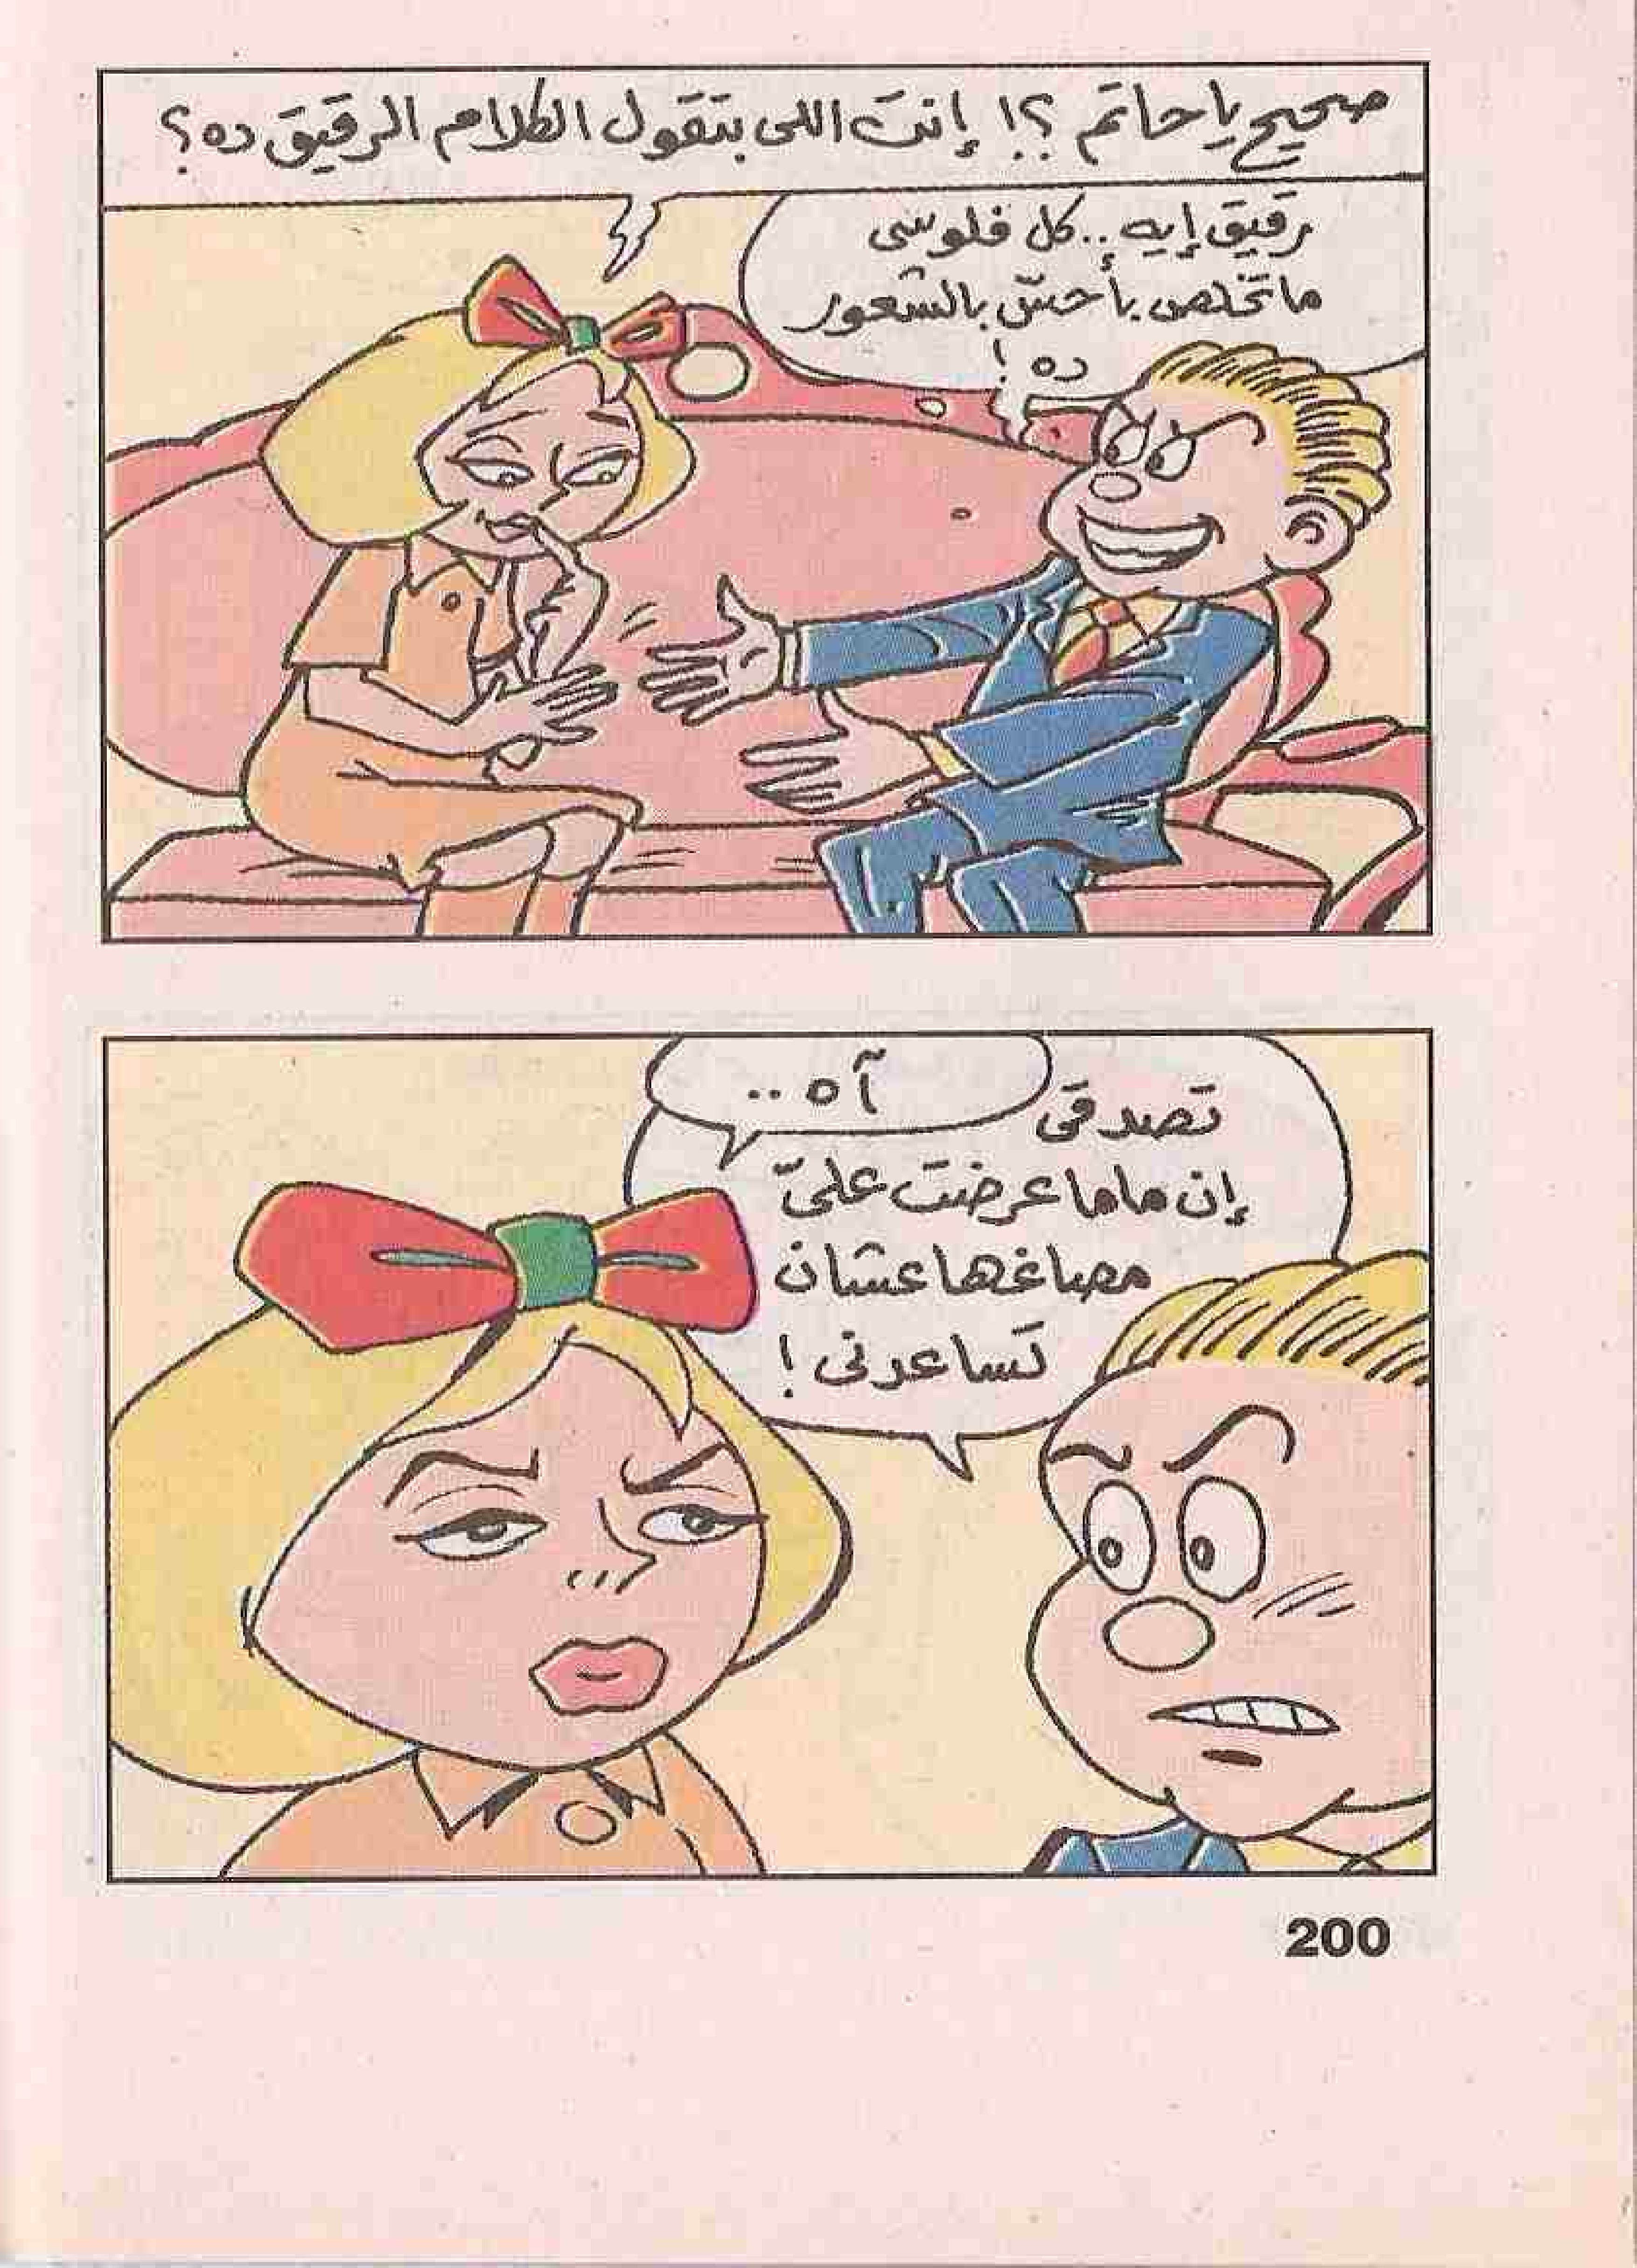 صحيح يا حاتم ؟! إنت اللى بتقول الكلام الرقيق ده ؟
رقيق إيه .. كل فلوسى
ما تخلص بأحسّ بالشعور
ده !
آه ..
تصدقى
إن ماما عرضت علىّ
مصاغها عشان
تساعدنى !
200